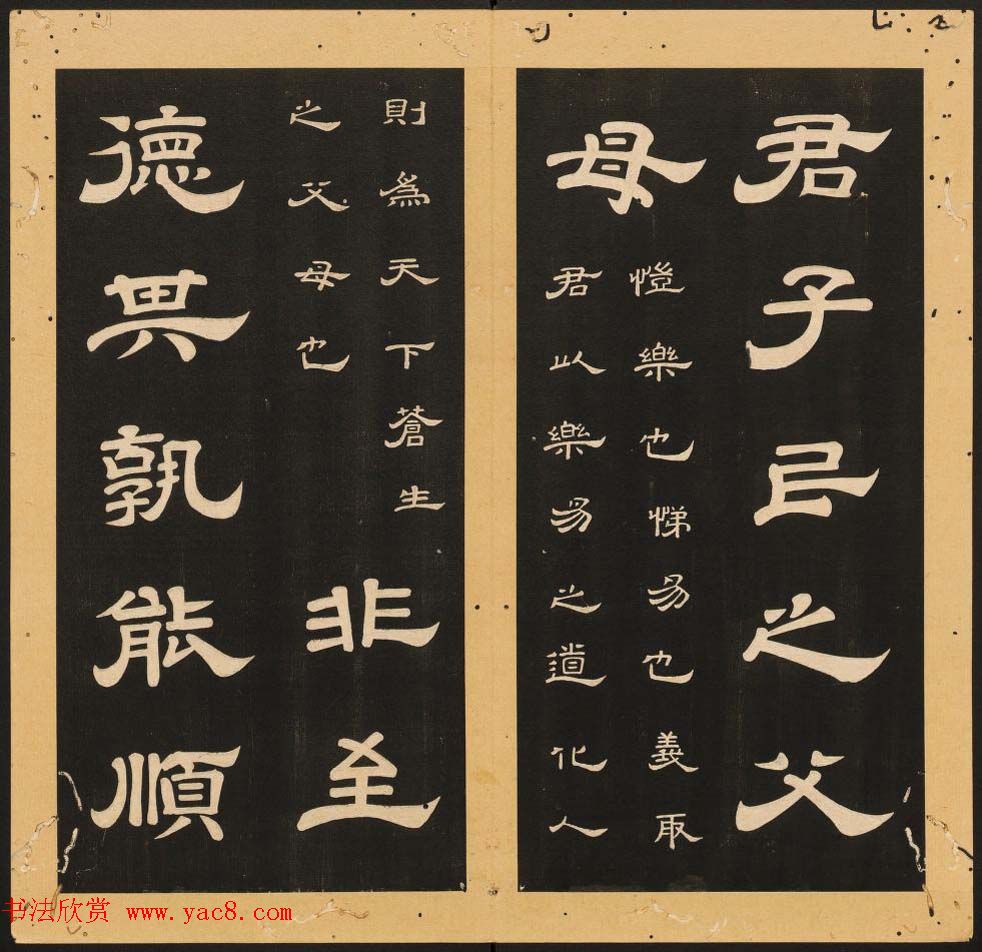 君子民之父
母
愷樂也悌易也義取
君以樂易之道化人
則為天下蒼生
之父母也
非至
德其孰能順
书法欣赏 www.yac8.com